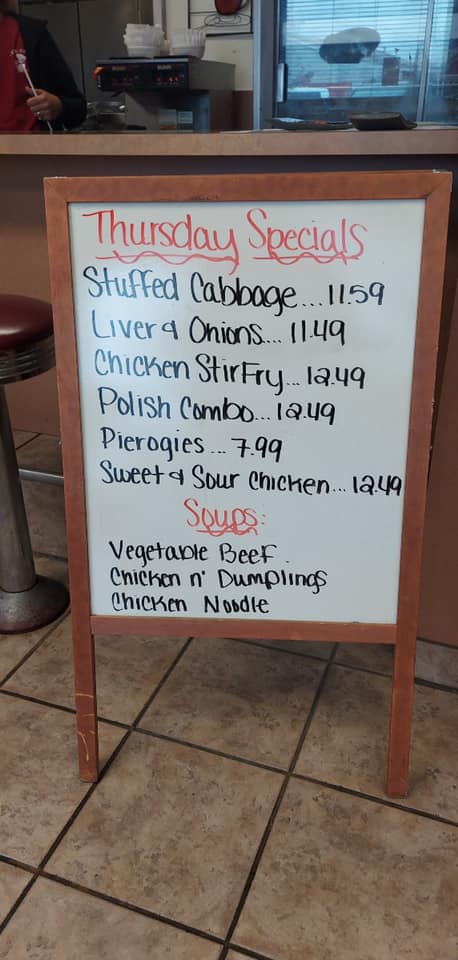 Thursday Specials
Stuffed Cabbage... 11.59
Liver & Onions.... 11.49
Chicken Stir Fry... 12.49
Polish Combo... 12.49
Pierogies... 7.99
Sweet & Sour Chicken... 12.49
Soups:
Vegetable Beef
Chicken n' Dumplings
Chicken Noodle